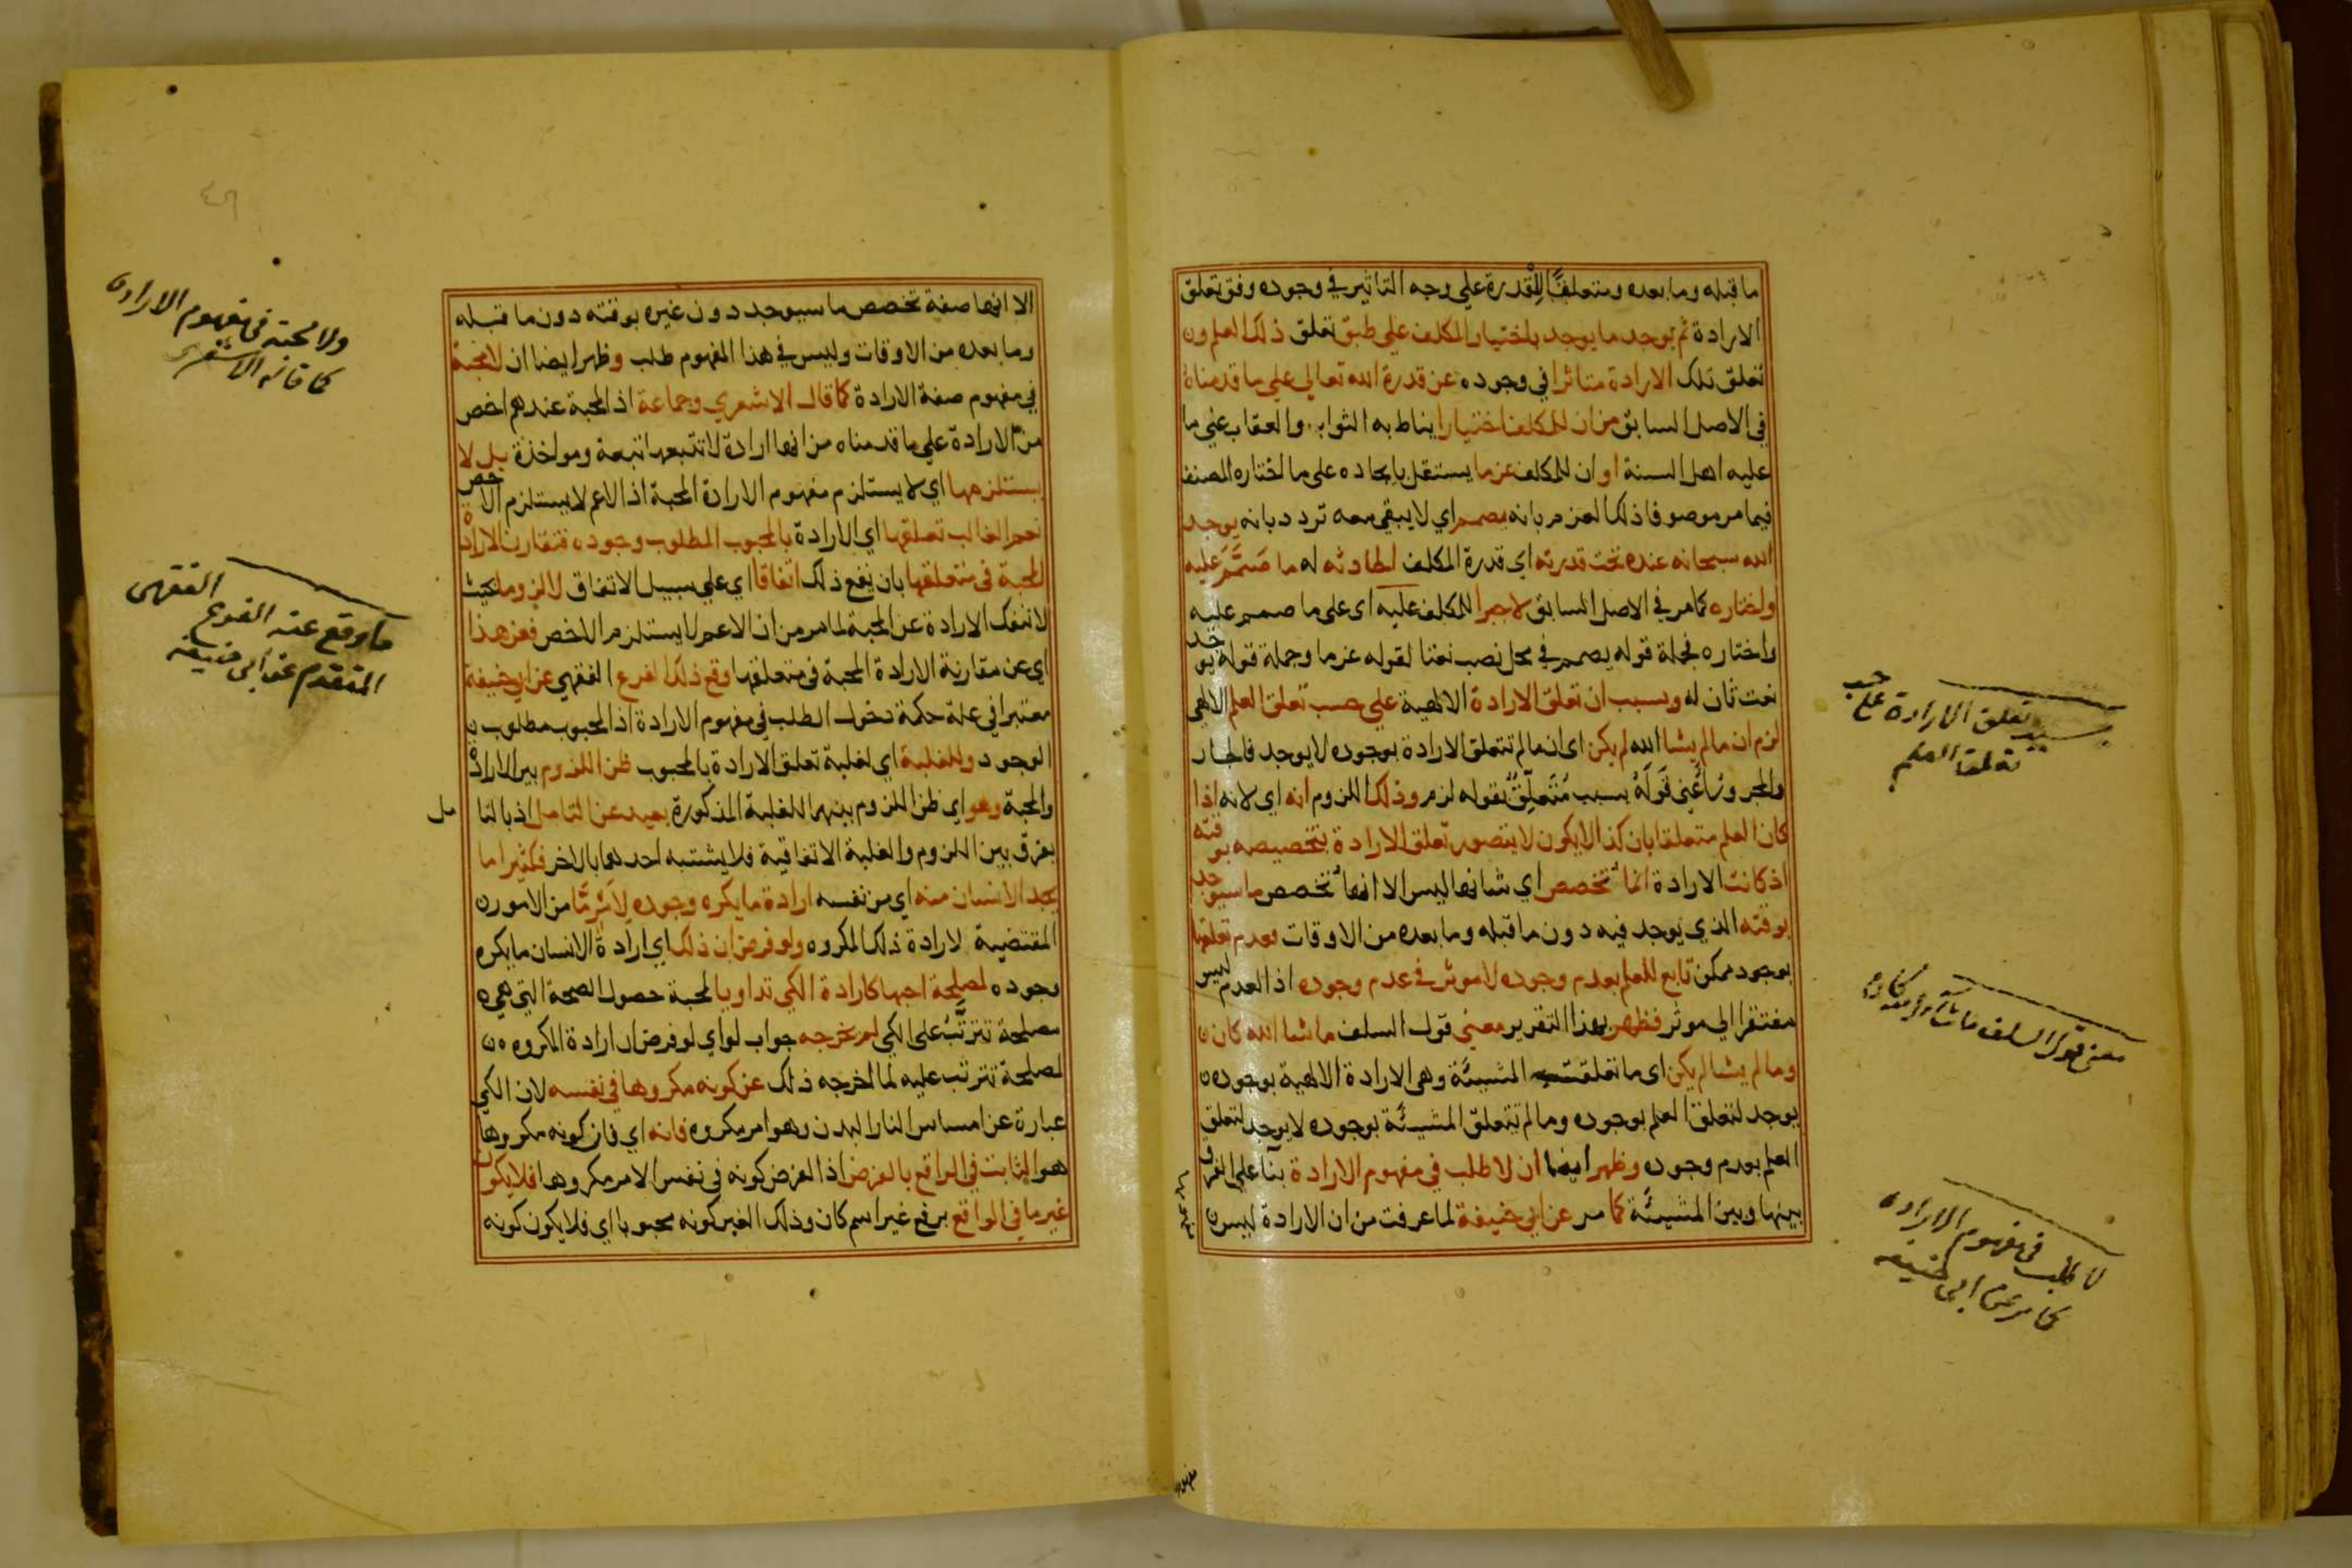 ما قبله وما بعده ومتعلقًا للقدرة علي وجه التاثير في وجوده وفق تعلق
الارادة ثم يوجد ما يوجد باختيار المكلف علي طبق تعلق ذلك العلم و
تعلق تلك الارادة متاثرا في وجوده عن قدرة الله تعالي علي ما قدمناه
في الاصل السابق من ان للمكلف اختيارا يناط به الثواب والعقاب علي ما
عليه اهل السنة او ان للمكلف عزما يستقل بايجاده علي ما اختاره المصنف
فيما مر موصوفا ذلك العزم بانه يصمم اي لا يبقي معه تردد بانه يوجد
الله سبحانه عنده تحت قدرته اي قدرة المكلف الحادثه له ما صَمَّمَ عليه
واختاره كما مر في الاصل السابق لا جبرا للمكلف عليه اي علي ما صمم عليه
واختاره فجملة قوله يصمم في محل نصب نعتا لقوله عزما وجملة قوله يوجد
نعت ثان له وبسبب ان تعلق الارادة الالهية علي حسب تعلق العلم الالهي
لزم ان ما لم يشا الله لم يكن اي ان ما لم تتعلق الارادة بوجوده لا يوجد فالجار
والمجرور اَعني قَولَهُ بسبب مُتَعلِّقٌ بقوله لزم وذلك اللزوم انه اي لانه اذا
كان العلم متعلقا بان كذا لا يكون لا يتصور تعلق الارادة بتخصيصه بوقته
اذ كانت الارادة انما تخصص اي شانها ليس الا انها تخصص ما سيوجد
بوقته الذي يوجد فيه دون ما قبله وما بعده من الاوقات فعدم تعلقها
بوجود ممكن تابع للعلم بعدم وجوده لا موثر في عدم وجوده اذ العدم ليس
مفتقرا الي موثر فظهر بهذا التقرير معني قول السلف ما شا الله كان
وما لم يشا لم يكن اي ما تعلقت المشيئة وهي الارادة الالهية بوجوده
يوجد لتعلق العلم بوجوده وما لم تتعلق المشيئة بوجوده لا يوجد لتعلق
العلم بعدم وجوده وظهر ايضا ان لا طلب في مفهوم الارادة بنا علي الفرق
بينها وبين المشيئة كما مر عن ابي حنيفة لما عرفت من ان الارادة ليس
بسبب تعلق الارادة علي حسب
تعلق العلم
معني قول السلف ما شاء الله كان
لا طلب في مفهوم الارادة
كما مر عن ابي حنيفة
الا انها صفة تخصص ما سيوجد دون غيره بوقته دون ما قبله
وما بعده من الاوقات وليس في هذا المفهوم طلب وظهر ايضا ان لا محبة
في مفهوم صفة الارادة كما قال الاشعري وجماعة اذ المحبة عندهم اخص
من الارادة علي ما قدمناه من انها ارادة لا تتبعها تبعة ومواخذة بل لا
يستلزمها اي لا يستلزم مفهوم الارادة المحبة اذ الاعم لا يستلزم الاخص
نعم الغالب تعلقها اي الارادة بالمحبوب المطلوب وجوده فتقارن الارادة
المحبة في متعلقها بان يقع ذلك اتفاقا اي علي سبيل الاتفاق لا لزوما بحيث
لا تنفك الارادة عن المحبة لما مر من ان الاعم لا يستلزم الاخص فعن هذا
اي عن مقارنة الارادة المحبة في متعلقها وقع ذلك الفرع الفقهي عن ابي حنيفة
معتبرا في علة حكمة دخول الطلب في مفهوم الارادة اذ المحبوب مطلوب
الوجود وللغلبة اي لغلبة تعلق الارادة بالمحبوب ظن اللزوم بين الارادة
والمحبة وهو اي ظن اللزوم بينهما للغلبة المذكورة بعيد عن التامل اذ بالتا مل
يفرق بين اللزوم والغلبة الاتفاقية فلا يشتبه احدهما بالاخر فكثيرا ما
يجد الانسان منه اي من نفسه ارادة ما يكره وجوده لاَمْرٍ مَّا من الامور
المقتضية لارادة ذلك المكروه ولو فرض ان ذلك اي ارادة الانسان ما يكره
وجوده لمصلحة احبها كارادة الكي تداويا لمحبة حصول الصحة التي هي
مصلحة تترتَّبُ علي الكي لم يخرجه جواب لو اي لو فرض ان ارادة المكروه
لمصلحة تترتب عليه لما اخرجه ذلك عن كونه مكروها في نفسه لان الكي
عبارة عن امساس النار البدن وهو امر مكروه فانه اي فان كونه مكروها
هو الثابت في الواقع بالفرض اذ الفرض كونه في نفس الامر مكروها فلا يكون
غير ما في الواقع برفع غير اسم كان وذلك الغير كونه محبوبا اي فلا يكون كونه
ولا محبة في مفهوم الارادة
كما قاله الاشعري
ما وقع عنه الفرع الفقهي
المتقدم عن ابي حنيفة